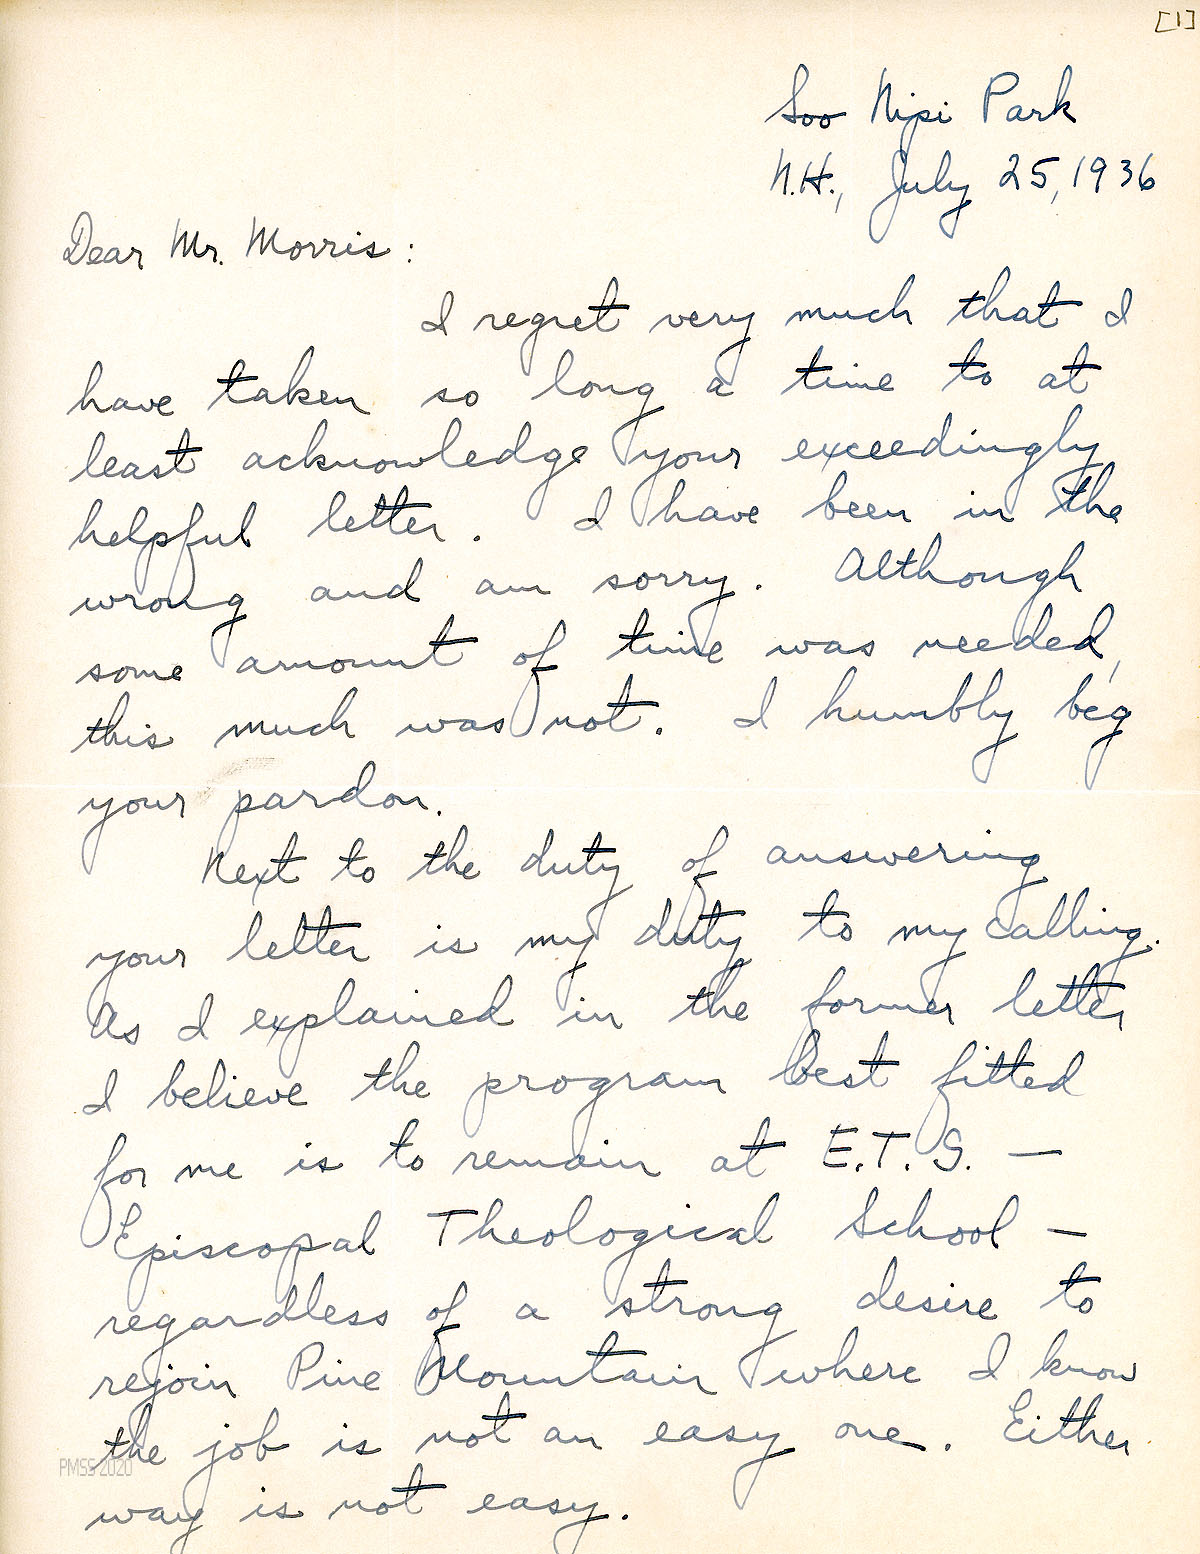 [1]
Soo Nipi Park
N.H., July 25, 1936
Dear Mr. Morris:
I regret very much that I
have taken so long a time to at
least acknowledge your exceedingly
helpful letter. I have been in the
wrong and am sorry. Although
some amount of time was needed,
this much was not. I humbly beg
your pardon.
Next to the duty of answering
your letter is my duty to my calling.
As I explained in the former letter
I believe the program best fitted
for me is to remain at E.T.S. —
Episcopal Theological School —
regardless of a strong desire to
rejoin Pine Mountain where I know
the job is not an easy one. Either
PMSS 2020
way is not easy.